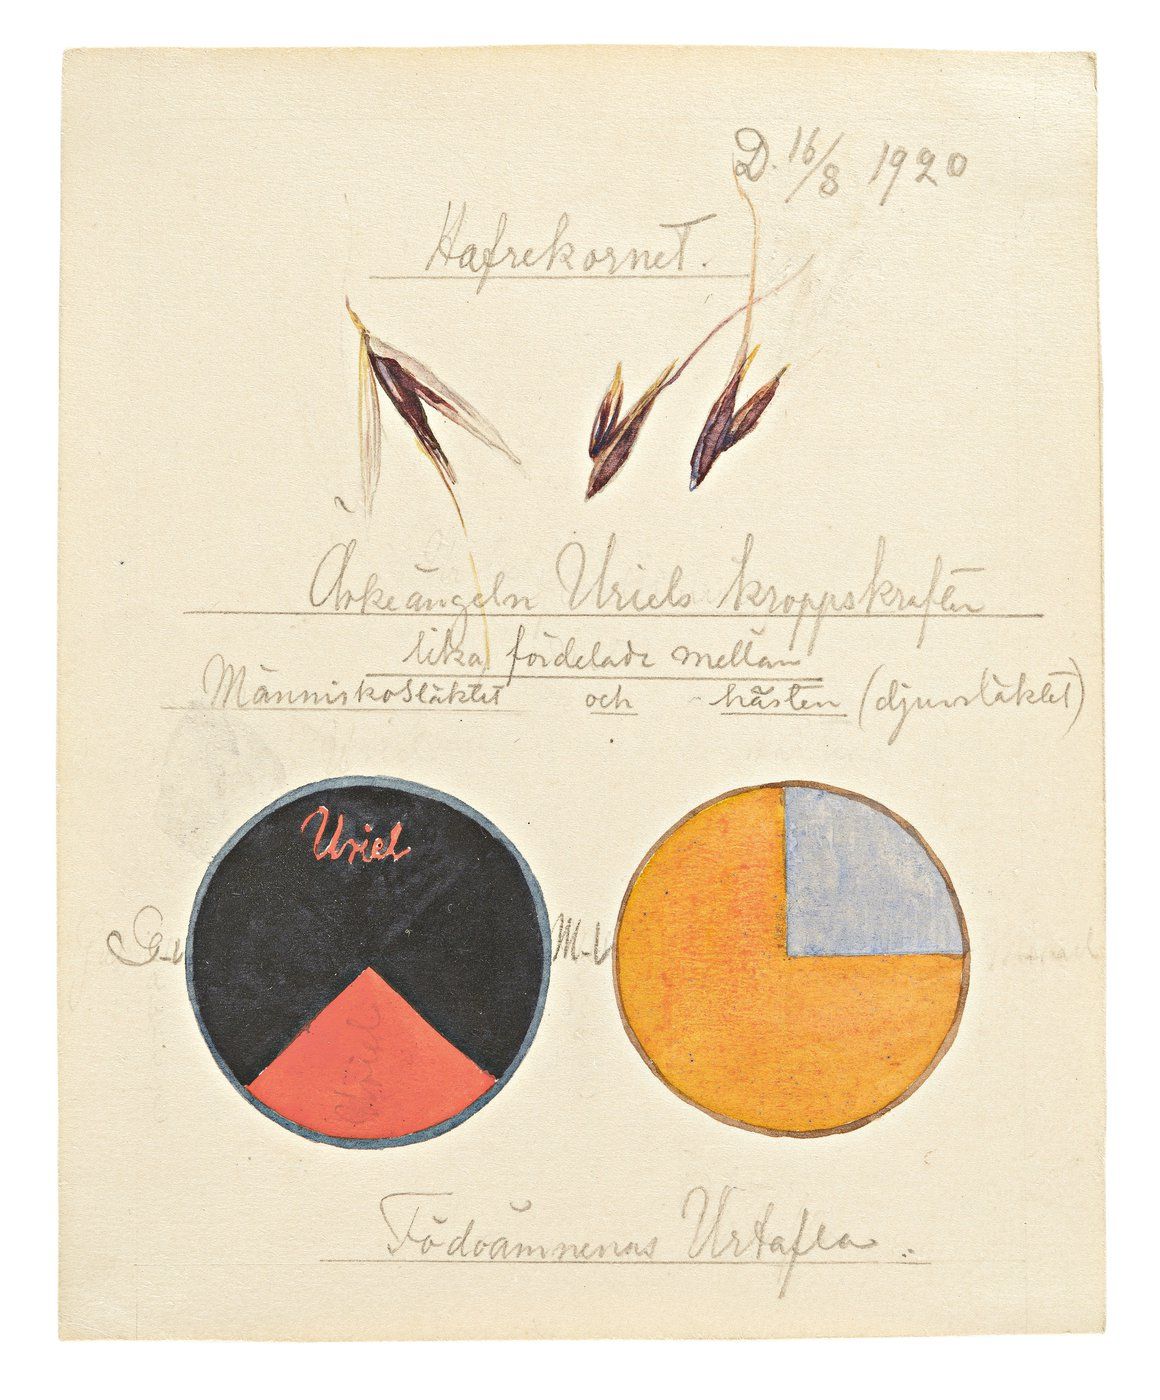 D. 16/8 1920
Hafrekornet.
Ärkeängeln Uriels kroppskrafter
lika fördelade mellan
Människosläktet och hästen (djursläktet)
Uriel
G-v
M-v
Uriel
Födoämnenas Urtafla